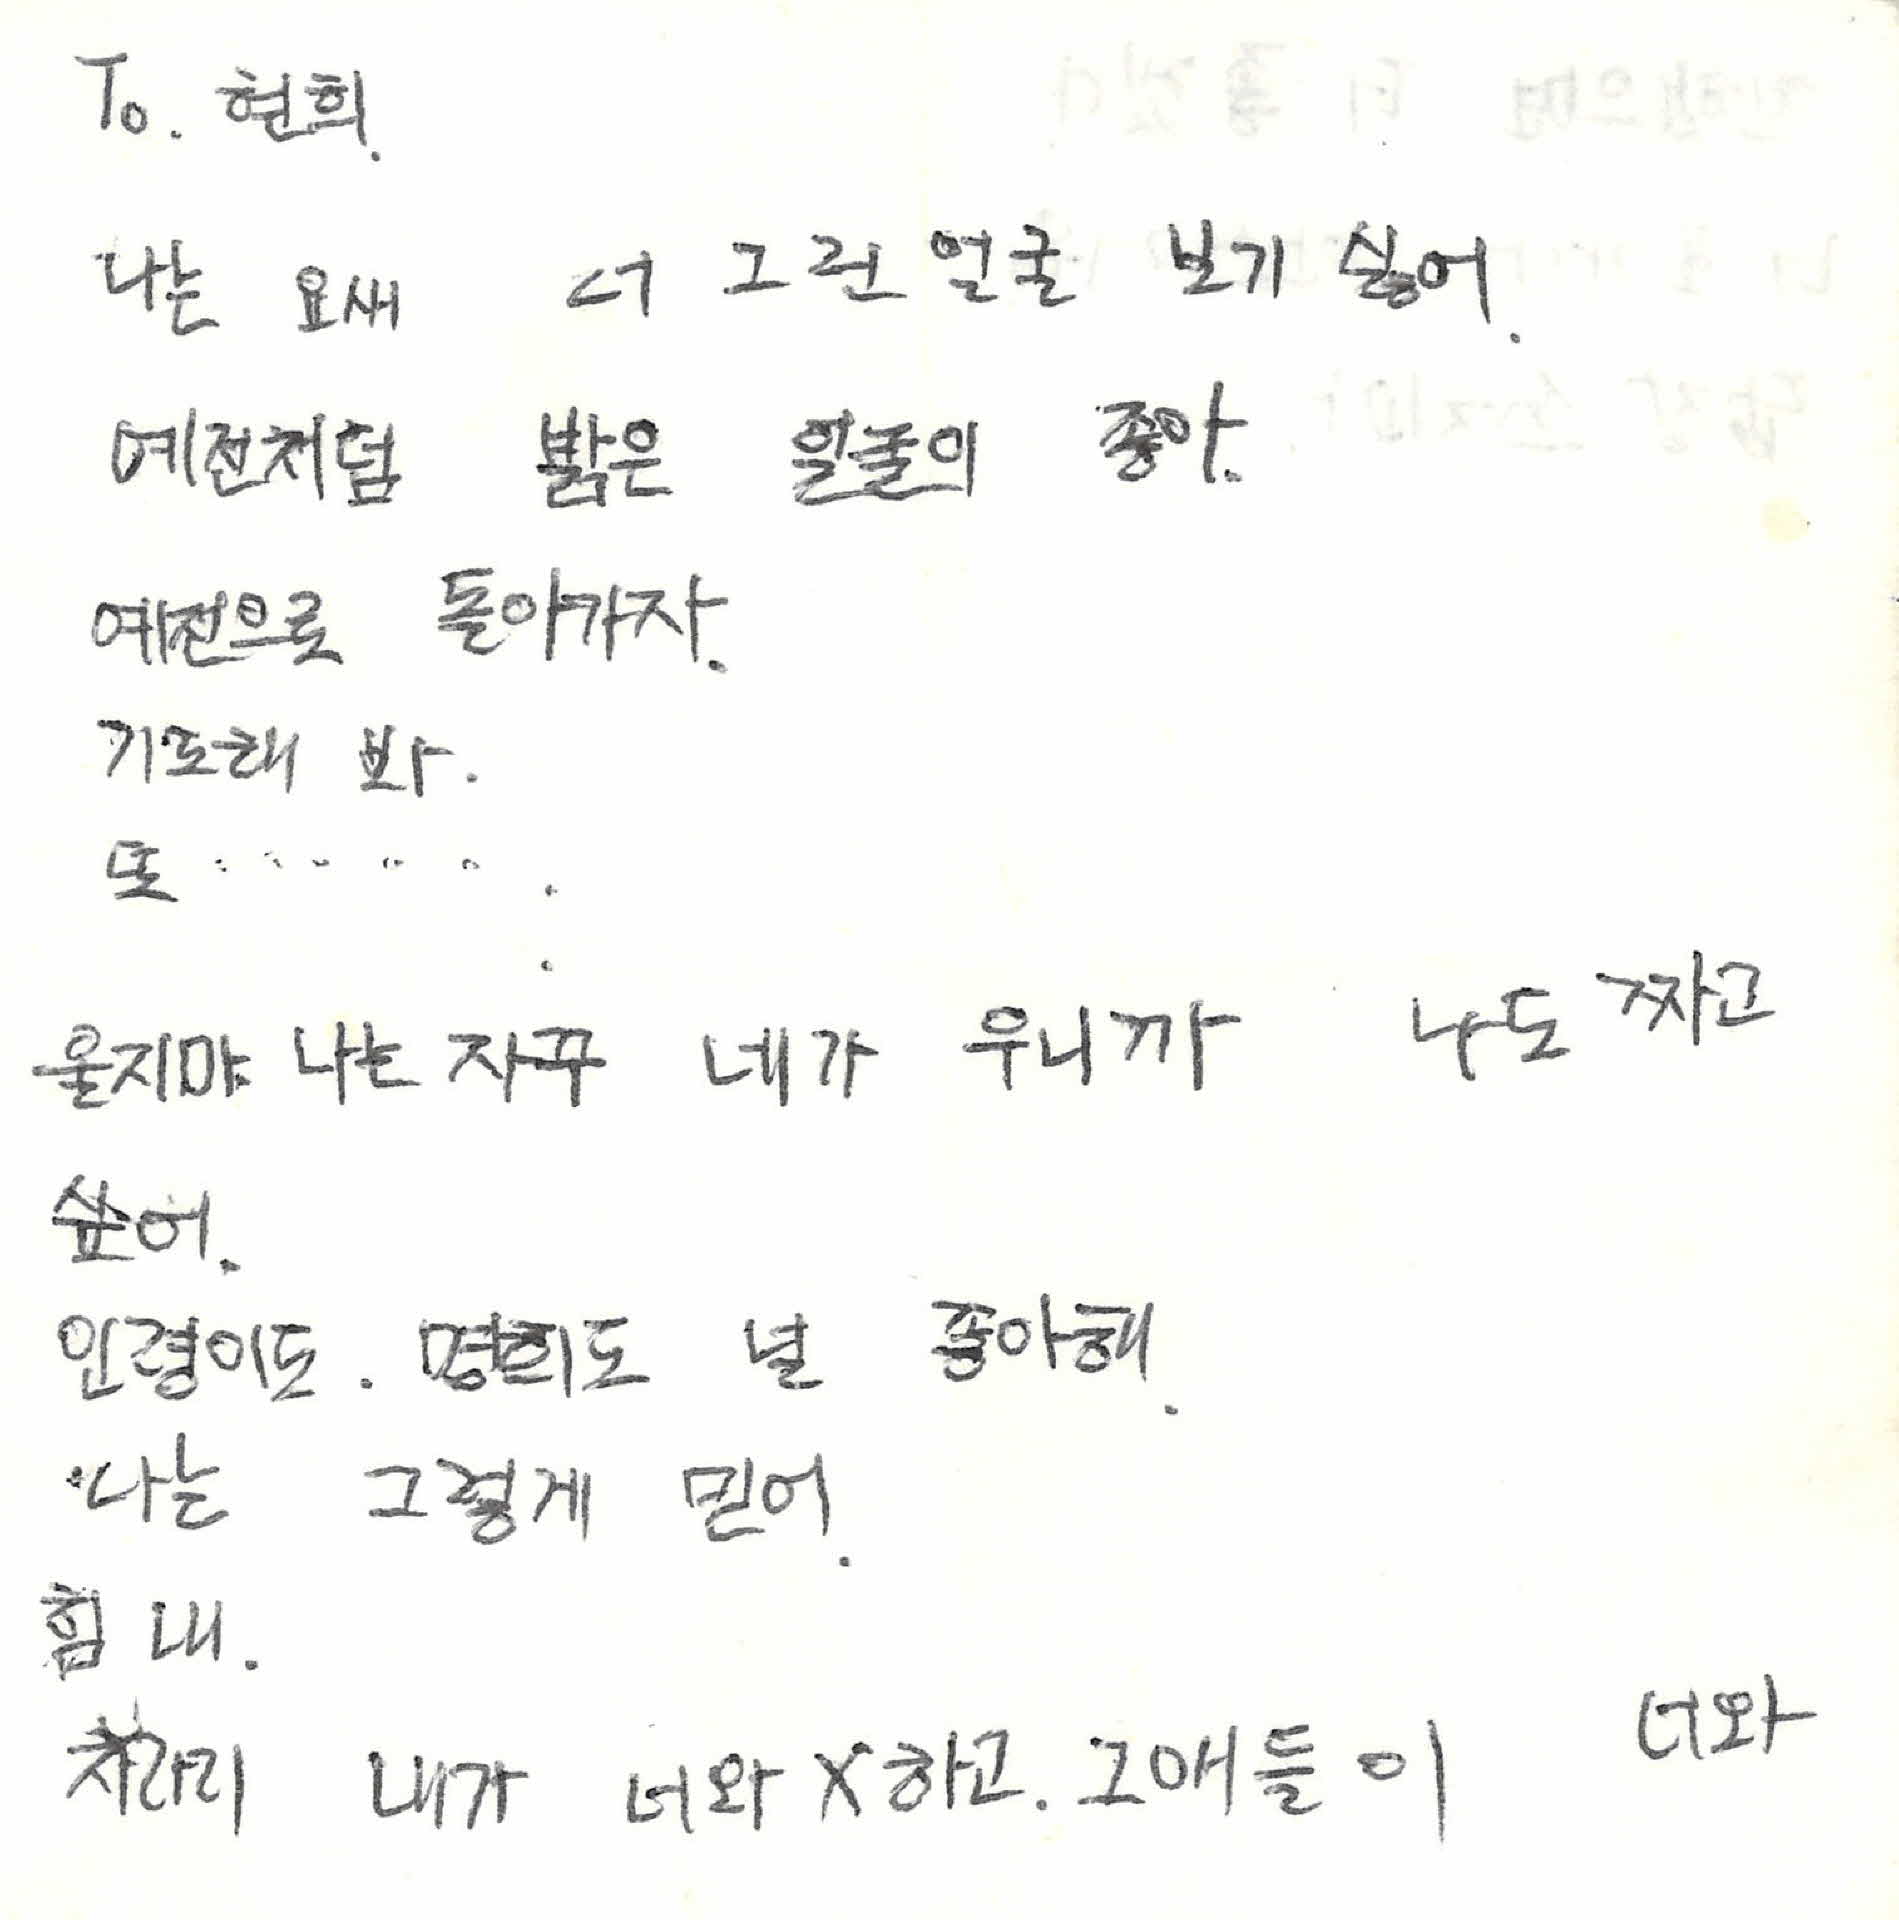 To. 현희.
나는 요새 너 그런 얼굴 보기 싫어.
예전처럼 밝은 얼굴의 좋아.
예전으로 돌아가자.
기도해 봐.
또 ......
울지마 나는 자꾸 네가 우니까 나도 짜고
싶어.
인령이도. 명희도 널 좋아해.
나는 그렇게 믿어.
힘 내.
차라리 내가 너와 X하고. 그애들이 너와